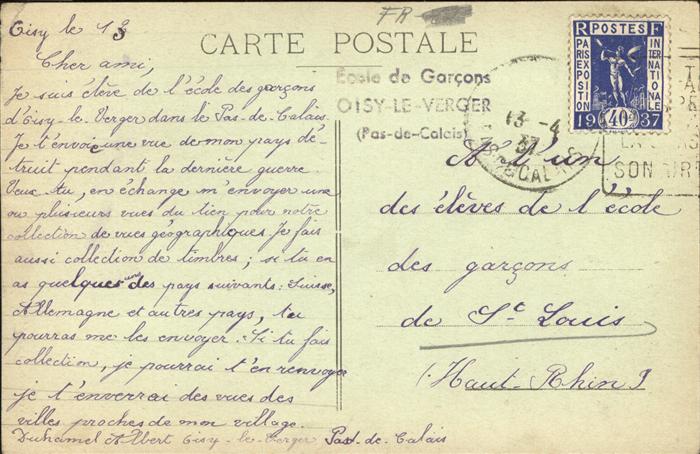 FR
CARTE POSTALE
Oisy le 13
Cher ami,
Je suis élève de l'école des garçons
d'Oisy-le-Verger dans le Pas-de-Calais.
Je t'envoie une vue de mon pays dé-
truit pendant la dernière guerre.
Veux-tu, en échange m'envoyer une
ou plusieurs vues du tien pour notre
collection de vues géographiques. Je fais
aussi collection de timbres ; si tu en
as quelques uns des pays suivants : Suisse,
Allemagne et autres pays, tu
pourras me les envoyer. Si tu fais
collection, je pourrai t'en renvoyer
je t'enverrai des vues des
villes proches de mon village.
Duhamel Albert Oisy-le-Verger Pas-de-Calais
Ecole de Garçons
OISY-LE-VERGER
(Pas-de-Calais)
13 -4
37
PAS DE CALAIS
RF POSTES
PARIS EXPOSITION
INTERNATIONALE
19 40c 37
SON AIR
A l'un
des élèves de l'école
des garçons
de St Louis
(Haut-Rhin)